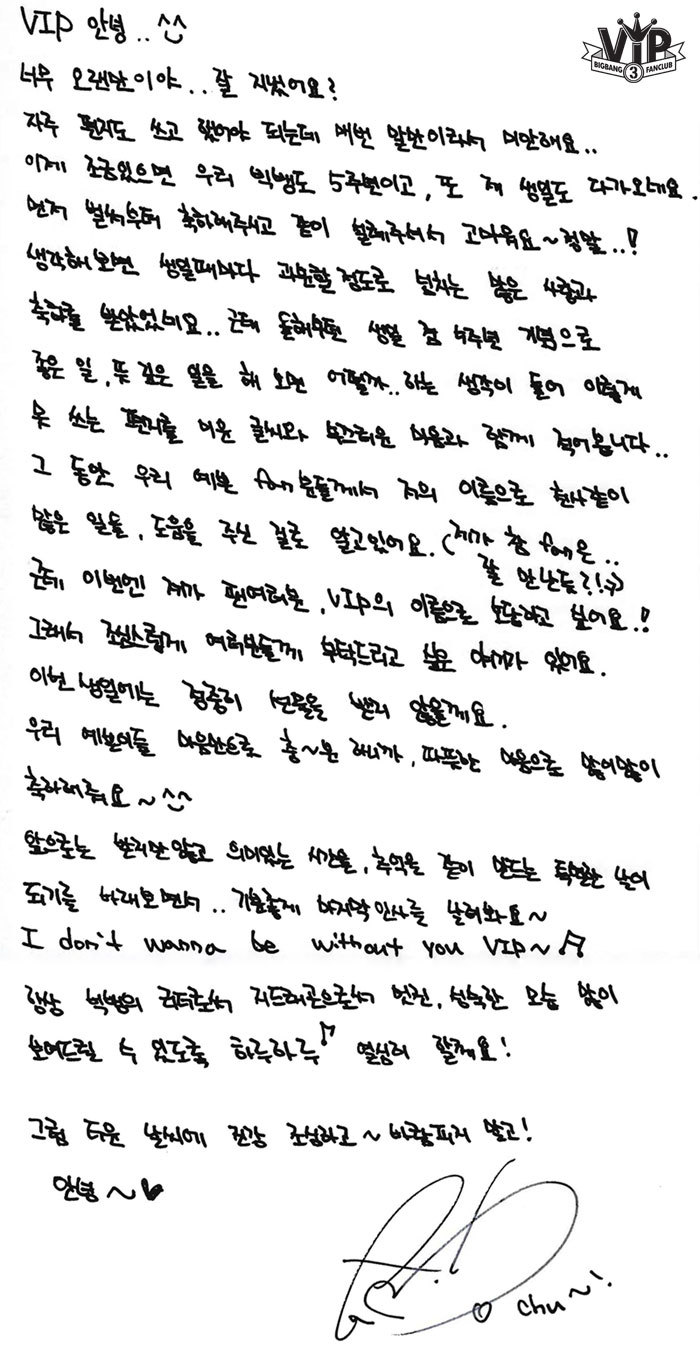 VIP 안녕..^^
ViP
BIGBANG 3 FANCLUB
너무 오랜만이야.. 잘 지냈어요?
자주 편지도 쓰고 했어야 되는데 매번 말만이라서 미안해요..
이제 조금있으면 우리 빅뱅도 5주년이고, 또 제 생일도 다가오네요.
먼저 벌써부터 축하해주시고 같이 설레주셔서 고마워요~ 정말..!
생각해보면 생일때마다 과분할 정도로 넘치는 많은 사랑과
축하를 받았었네요.. 근데 올해부턴 생일 겸 5주년 기념으로
좋은 일, 뜻 깊은 일을 해 보면 어떨까.. 하는 생각이 들어 이렇게
못 쓰는 편지를 미운 글씨와 부끄러운 마음과 함께 적어봅니다..
그 동안 우리 예쁜 fan분들께서 저의 이름으로 천사같이
많은 일들, 도움을 주신 걸로 알고있어요. (제가 참 fan은..
잘 만난듯?!:)
근데 이번엔 제가 팬여러분, VIP의 이름으로 보답하고 싶어요!!
그래서 조심스럽게 여러분들께 부탁드리고 싶은 얘기가 있어요.
이번 생일에는 정중히 선물을 받지 않을게요.
우리 예쁜이들 마음만으로 충~분 하니까, 따뜻한 마음으로 많이많이
축하해줘요~^^
앞으로는 받지만않고 의미있는 시간을, 추억을 같이 만드는 특별한 날이
되기를 바래보면서.. 기분좋게 마지막인사를 날려봐요~
I don't wanna be without you VIP~♬
항상 빅뱅의 리더로써 지드래곤으로써 멋진, 성숙한 모습 많이
보여드릴 수 있도록 하루하루♪ 열심히 할게요!
그럼 더운 날씨에 건강 조심하고~ 바람피지 말고!
안녕~♥
chu~!